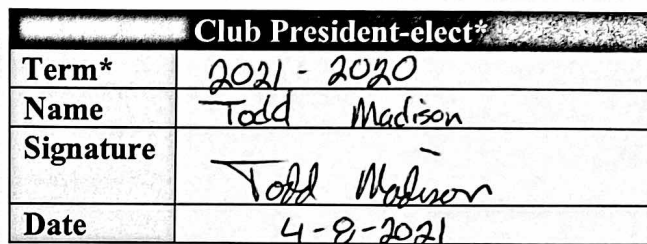 Club President-elect*
Term* 2021 - 2020
Name Todd Madison
Signature Todd Madison
Date 4-8-2021